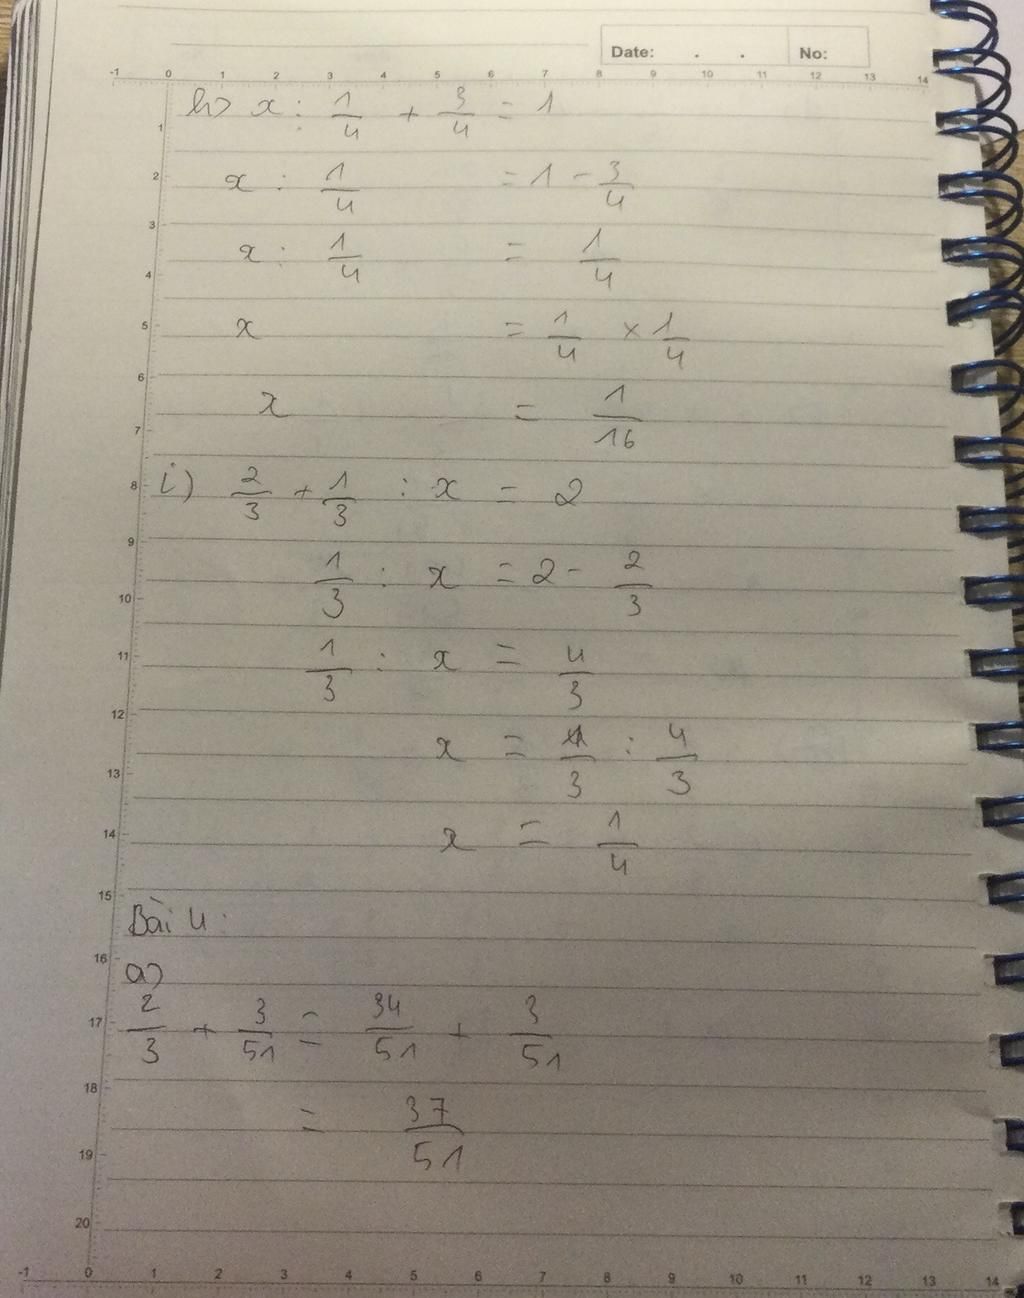 Date: . . No:
-1 0 1 2 3 4 5 6 7 8 9 10 11 12 13 14
h) x : 1/4 + 3/4 = 1
1
x : 1/4 = 1 - 3/4
2
3
x : 1/4 = 1/4
4
x = 1/4 × 1/4
5
6
x = 1/16
7
i) 2/3 + 1/3 : x = 2
8
9
1/3 : x = 2 - 2/3
10
1/3 : x = 4/3
11
12
x = 1/3 : 4/3
13
x = 1/4
14
15
Bài 4:
16
a)
2/3 + 3/51 = 34/51 + 3/51
17
18
= 37/51
19
20
-1 0 1 2 3 4 5 6 7 8 9 10 11 12 13 14